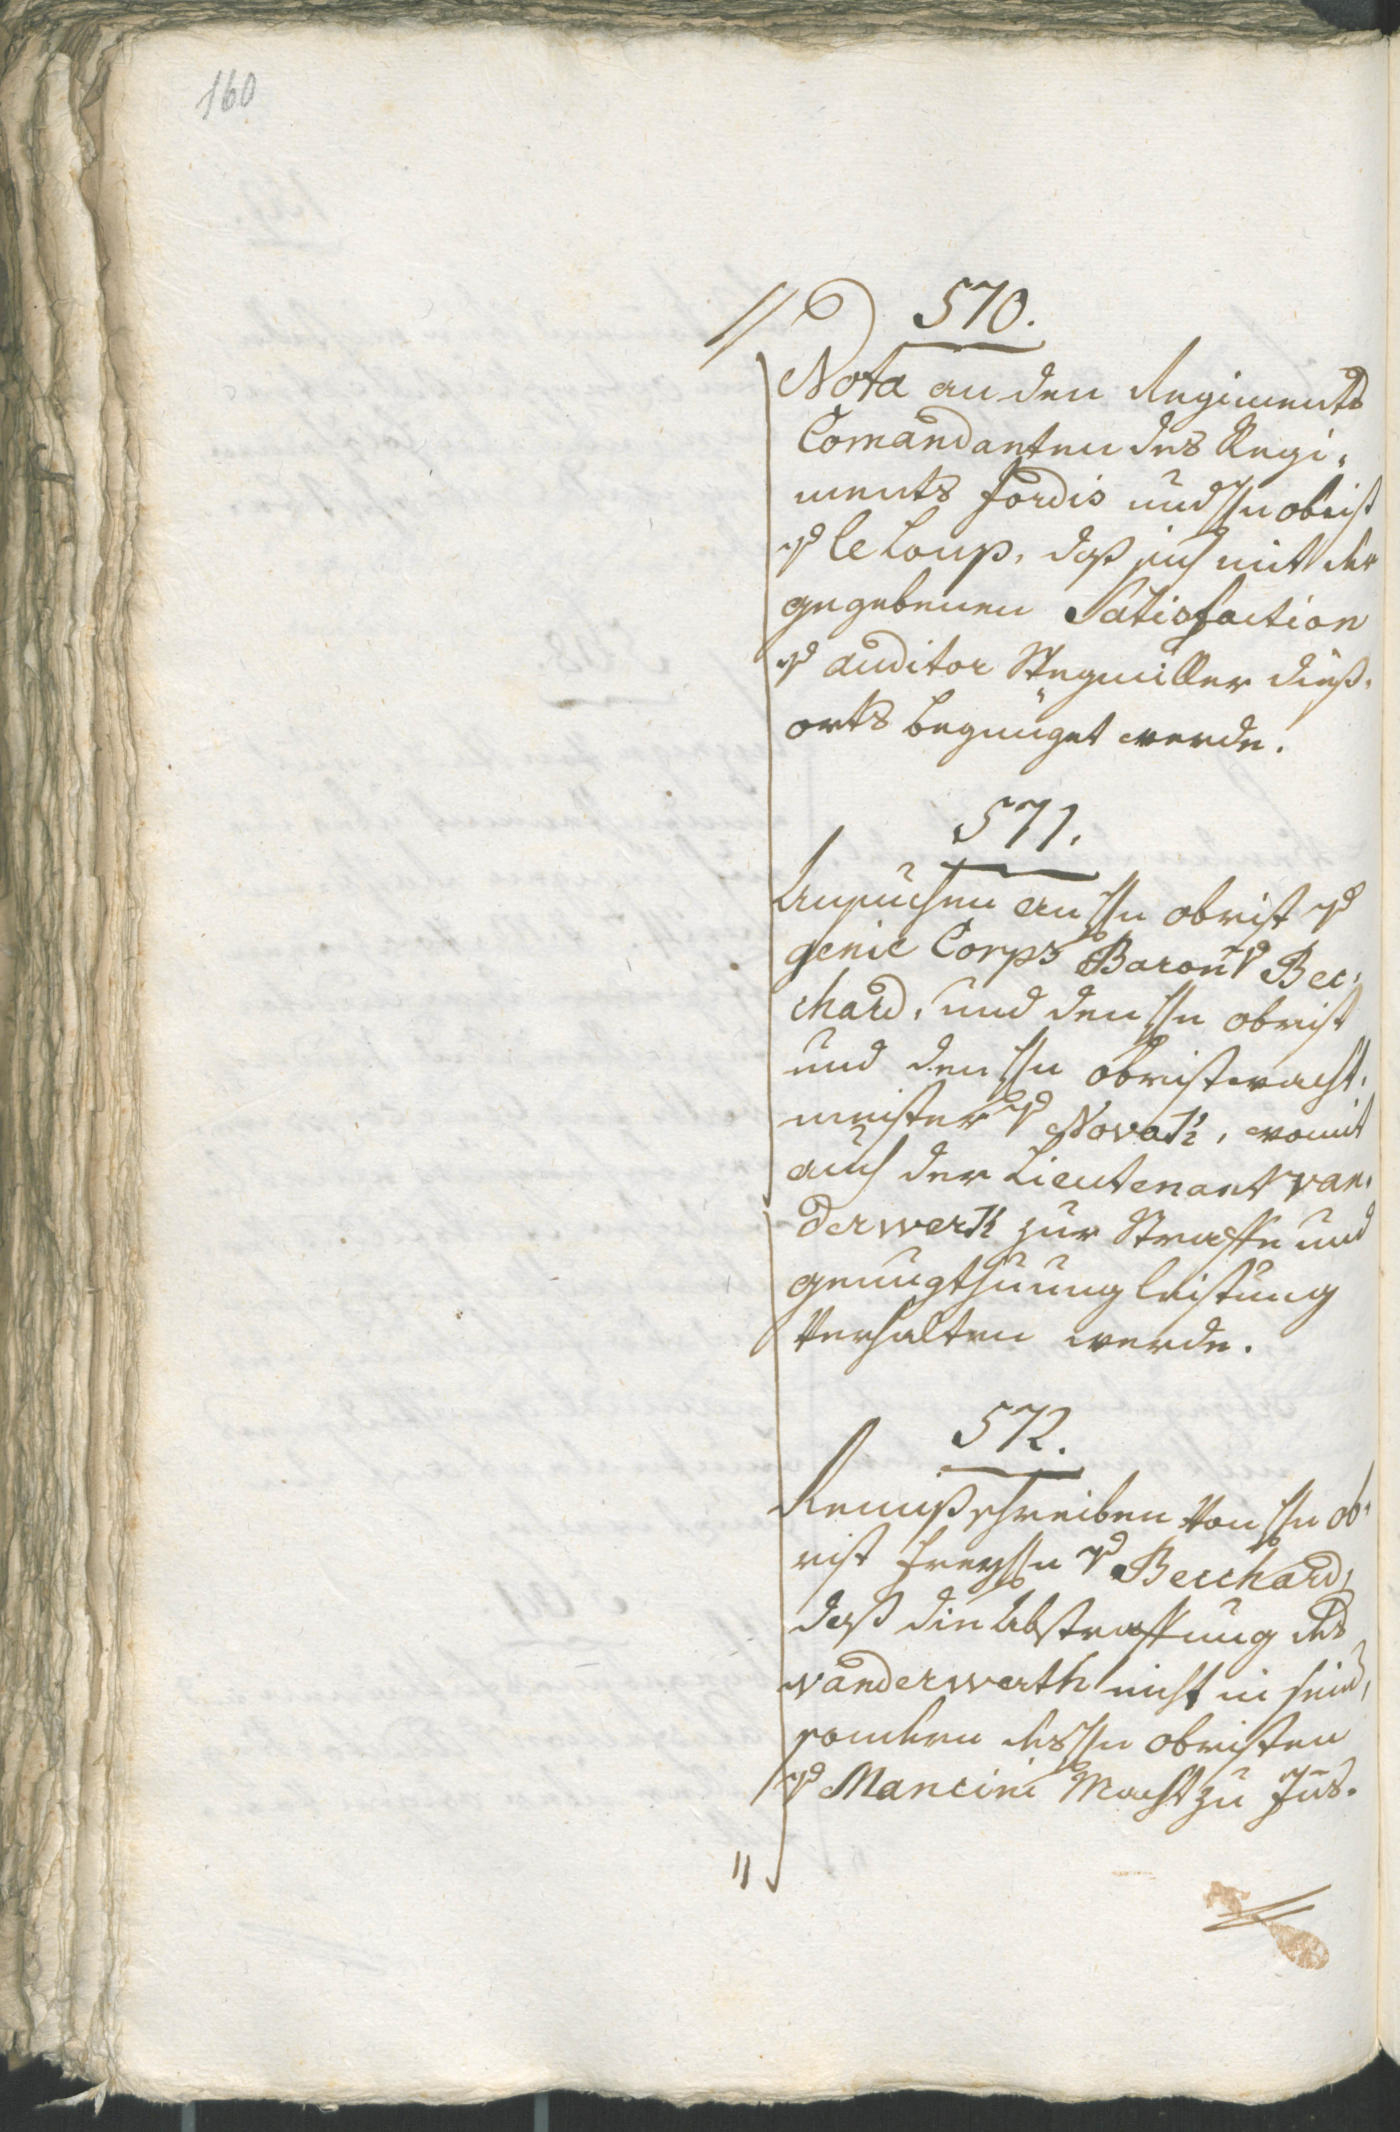 160
570.
Nota an den Regiments
Comandanten des Regi¬
ments Jordis und Hn obrist
v le Loup, daß sich mit der
gegebenen Satisfaction
v auditor Stegmiller dieß¬
orts begnüget werde.
571.
Ansuchen an Hn obrist v
genie Corps Baron v Bec¬
chard, und den Hn obrist
und den Hn obristwacht¬
meister v Novak, womit
auch der Lieutenant van¬
derwerk zur Straffe und
genugthuung leistung
verhalten werde.
572.
schreiben von Hn ob¬
rist Freyhn v Becchard,
daß die Abstraffung des
vanderwerth nicht in sein,
sondern des Hn obristen
v Mancini Macht zu